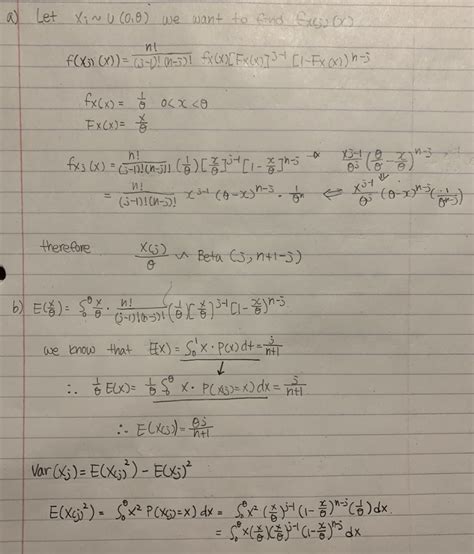 a) Let Xi ~ U(0,θ) we want to find fx(j)(x)
f(x(j)(x)) = n!/((j-1)!(n-j)!) fx(x)[Fx(x)]^(j-1) [1-Fx(x)]^(n-j)
fx(x) = 1/θ 0<x<θ
Fx(x) = x/θ
fxj(x) = n!/((j-1)!(n-j)!) (1/θ) [x/θ]^(j-1) [1-x/θ]^(n-j) x^(j-1)/θ^j (θ/θ - x/θ)^(n-j)
= n!/((j-1)!(n-j)!) x^(j-1) (θ-x)^(n-j) · 1/θ^n ⇔ x^(j-1)/θ^j (θ-x)^(n-j) (1/θ^(n-j))
therefore X(j)/θ ~ Beta (j, n+1-j)
b) E(x/θ) = ∫₀^θ x/θ · n!/((j-1)!(n-j)!) (1/θ) [x/θ]^(j-1) [1-x/θ]^(n-j)
we know that E(x) = ∫₀^1 x · P(x) dt = j/(n+1)
∴ 1/θ E(x) = 1/θ ∫₀^θ x · P(x(j)=x) dx = j/(n+1)
∴ E(X(j)) = θj/(n+1)
Var(Xj) = E(X(j)²) - E(Xj)²
E(X(j)²) = ∫₀^θ x² P(x(j)=x) dx = ∫₀^θ x² (x/θ)^(j-1) (1-x/θ)^(n-j) (1/θ) dx
= ∫₀^θ x (x/θ) (x/θ)^(j-1) (1-x/θ)^(n-j) dx